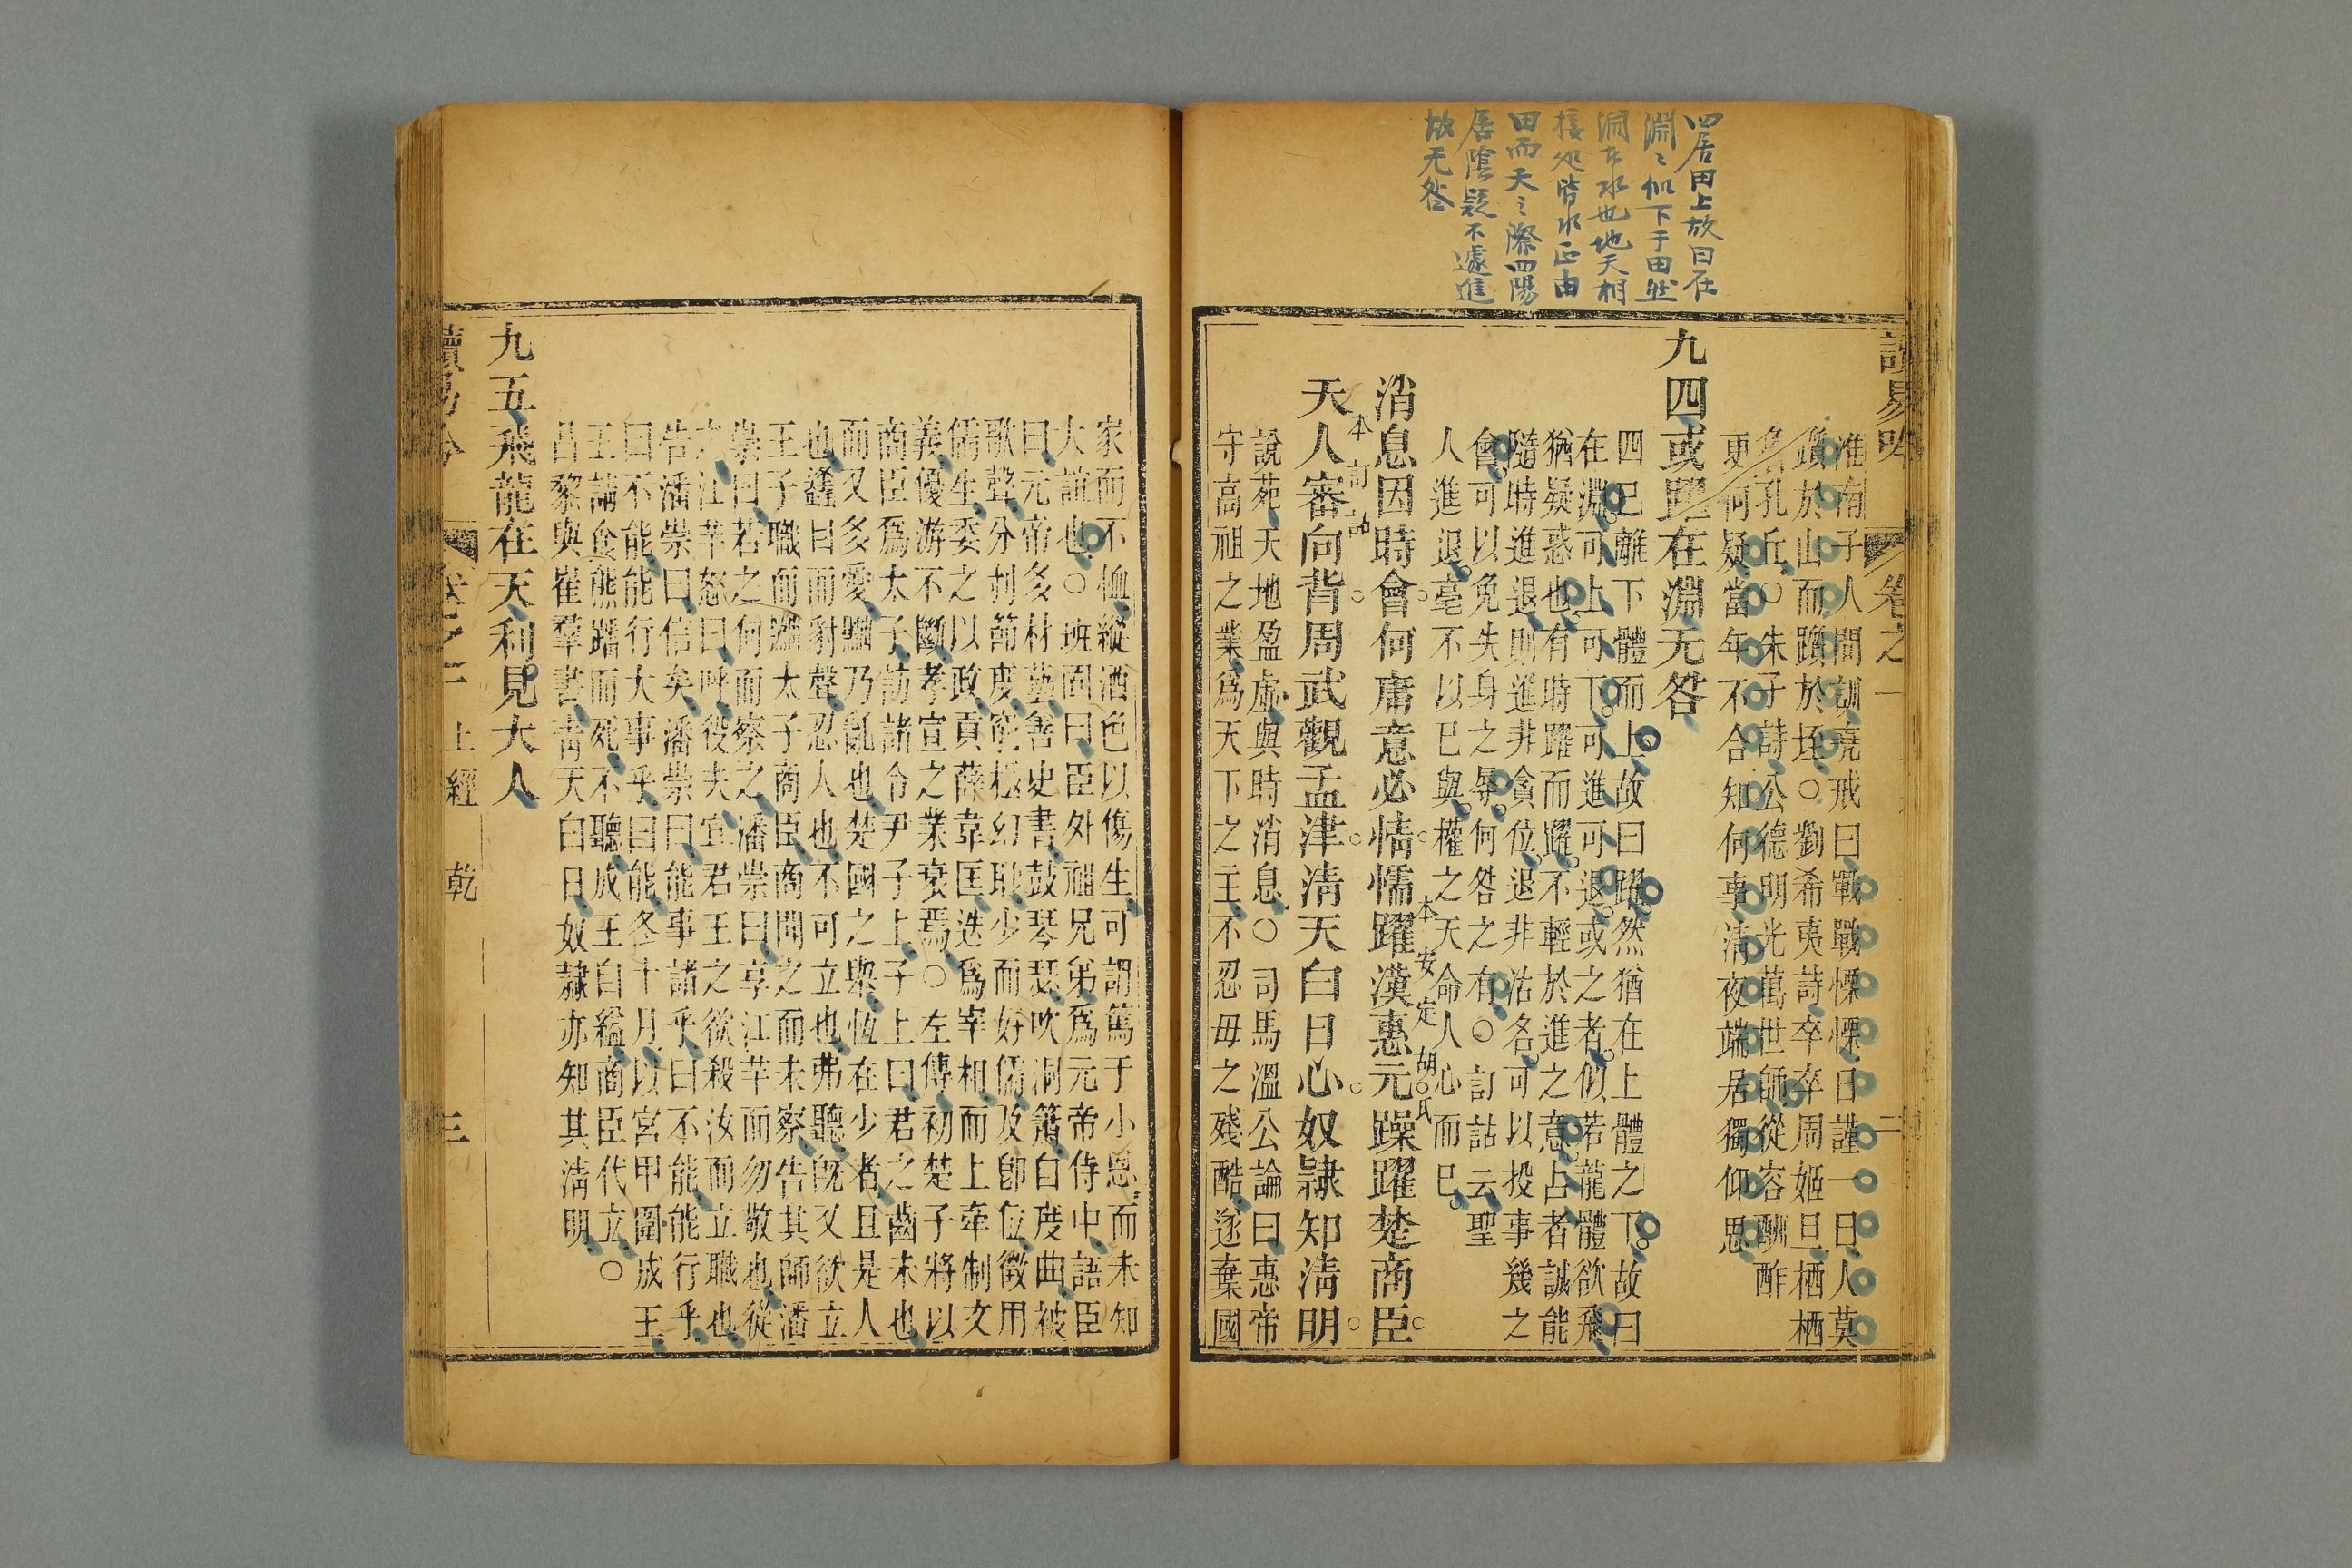 四居田上故曰在
淵〻似下于田然
淵本水也地天相
接処皆水正由
田而天之際四陽
居陰疑不遽進
故无咎
讀易吟
卷之一
二
淮南子人間訓堯戒曰戰戰慄慄日謹一日人莫
蹟於山而蹟於垤○劉希夷詩卒卒周姬旦栖栖
魯孔丘○朱子詩公德明光萬世師從容酬酢
更何疑當年不合知何事淸夜端居獨仰思
九四或躍在淵无咎
四已離下體而上故曰躍然猶在上體之下故曰
在淵可上可下可進可退或之者似若龍體欲飛
猶疑惑也有時躍而躍不輕於進之意占者誠能
隨時進退則進非貪位退非沽名可以投事幾之
會可以免失身之辱何咎之有○訂詁云聖
人進退毫不以已與權之天命人心而已
本安定胡氏
消息因時會何庸意必情懦躍漢惠元躁躍楚商臣
本訂詁
天人審向背周武觀孟津淸天白日心奴隷知淸明
說苑天地盈虛與時消息○司馬溫公論曰惠帝
守高祖之業爲天下之主不忍毋之殘酷遂棄國
家而不恤縱酒色以傷生可謂篤于小恩而未知
大誼也○班固曰臣外祖兄弟爲元帝侍中語臣
曰元帝多材藝善史書鼓琴瑟吹洞簫自度曲被
歌聲分刌節度窮極幻眇少而好儒及卽位徵用
儒生委之以政貢薛韋匡迭爲宰相而上牽制文
義優游不斷孝宣之業衰焉○左傳初楚子將以
商臣爲太子訪諸令尹子上子上曰君之齒未也
而又多愛黜乃亂也楚國之舉恆在少者且是人
也蠭目而豺聲忍人也不可立也弗聽旣又欲立
王子職而黜太子商臣商臣聞之而未察告其師潘
崇曰若之何而察之潘崇曰享江芈而勿敬也從
之江芈怒曰呼役夫宜君王之欲殺汝而立職也
告潘崇曰信矣潘崇曰能事諸乎曰不能能行乎
曰不能能行大事乎曰能冬十月以宮甲圍成王
王請食熊蹯而死不聽成王自縊商臣代立○
呂黎與崔羣書靑天白日奴隷亦知其淸明
九五飛龍在天利見大人
讀易吟
卷之一
上經
乾
三